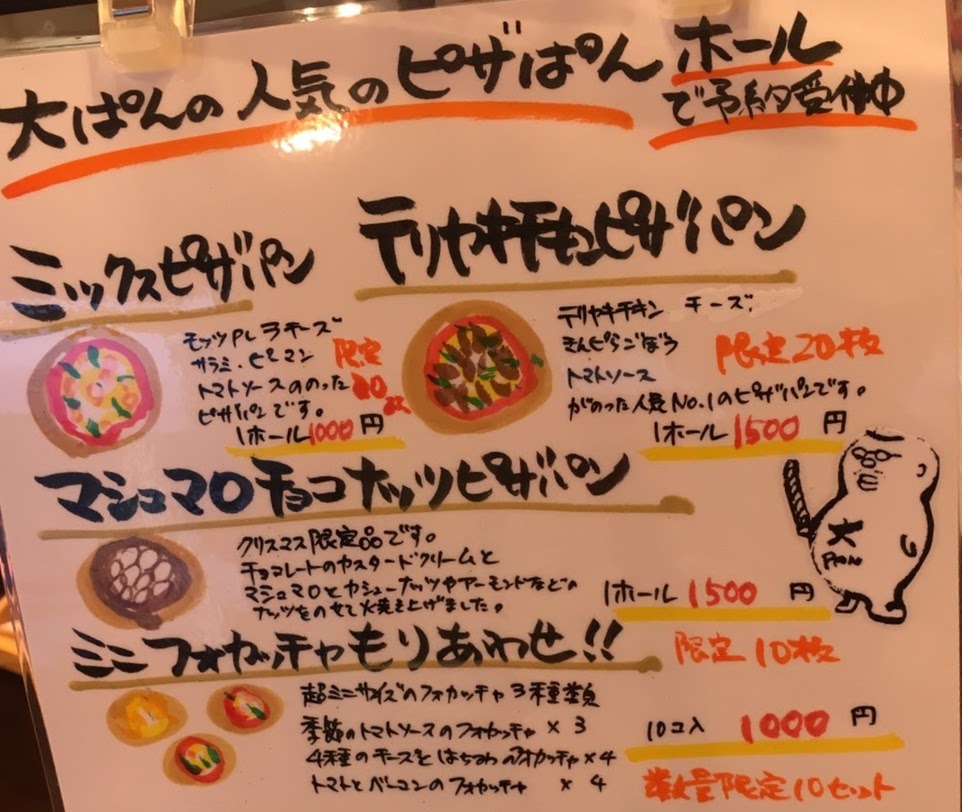 大ぱんの人気のピザぱん ホール
で予約受付中
ミックスピザパン
モッツァレラチーズ
サラミ・ピーマン
トマトソースののった
ピザパンです。
限定
20
1ホール1000円
テリヤキチキンピザパン
テリヤキチキン チーズ
きんぴらごぼう
トマトソース
がのった人気No.1のピザパンです。
限定20枚
1ホール1500円
マシュマロチョコナッツピザパン
クリスマス限定品です。
チョコレートのカスタードクリームと
マシュマロとカシューナッツやアーモンドなどの
ナッツをのせて焼き上げました。
1ホール1500円
大
PAN
ミニフォカッチャもりあわせ!!
限定10枚
超ミニサイズのフォカッチャ3種類
季節のトマトソースのフォカッチャ×3
4種のチーズとはちみつのフォカッチャ×4
トマトとベーコンのフォカッチャ ×4
10コ入 1000円
数量限定10セット